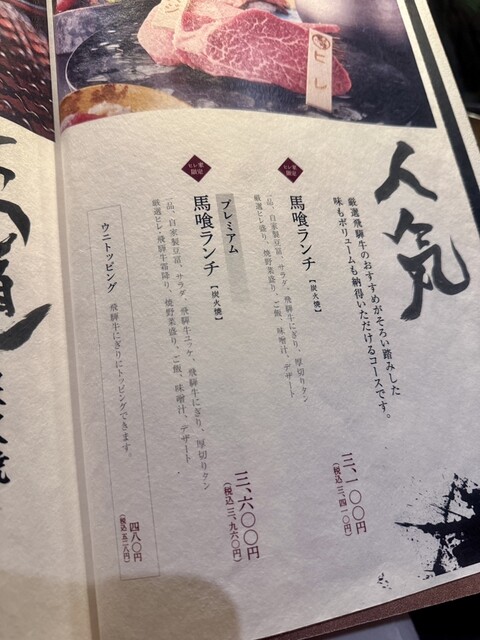 ヒレ
人気
厳選飛騨牛のおすすめがそろい踏みした
味もボリュームも納得いただけるコースです。
限定
馬喰ランチ【炭火焼】
一品、自家製豆冨、サラダ、飛騨牛にぎり、厚切りタン
厳選ヒレ盛り、焼野菜盛り、ご飯、味噌汁、デザート
三、一〇〇円
(税込三、四一〇円)
限定
プレミアム
馬喰ランチ【炭火焼】
一品、自家製豆冨、サラダ、飛騨牛ユッケ、飛騨牛にぎり、厚切りタン
厳選ヒレ・飛騨牛霜降り、焼野菜盛り、ご飯、味噌汁、デザート
三、六〇〇円
(税込三、九六〇円)
ウニトッピング 飛騨牛にぎりにトッピングできます。
四八〇円
(税込五二八円)
道